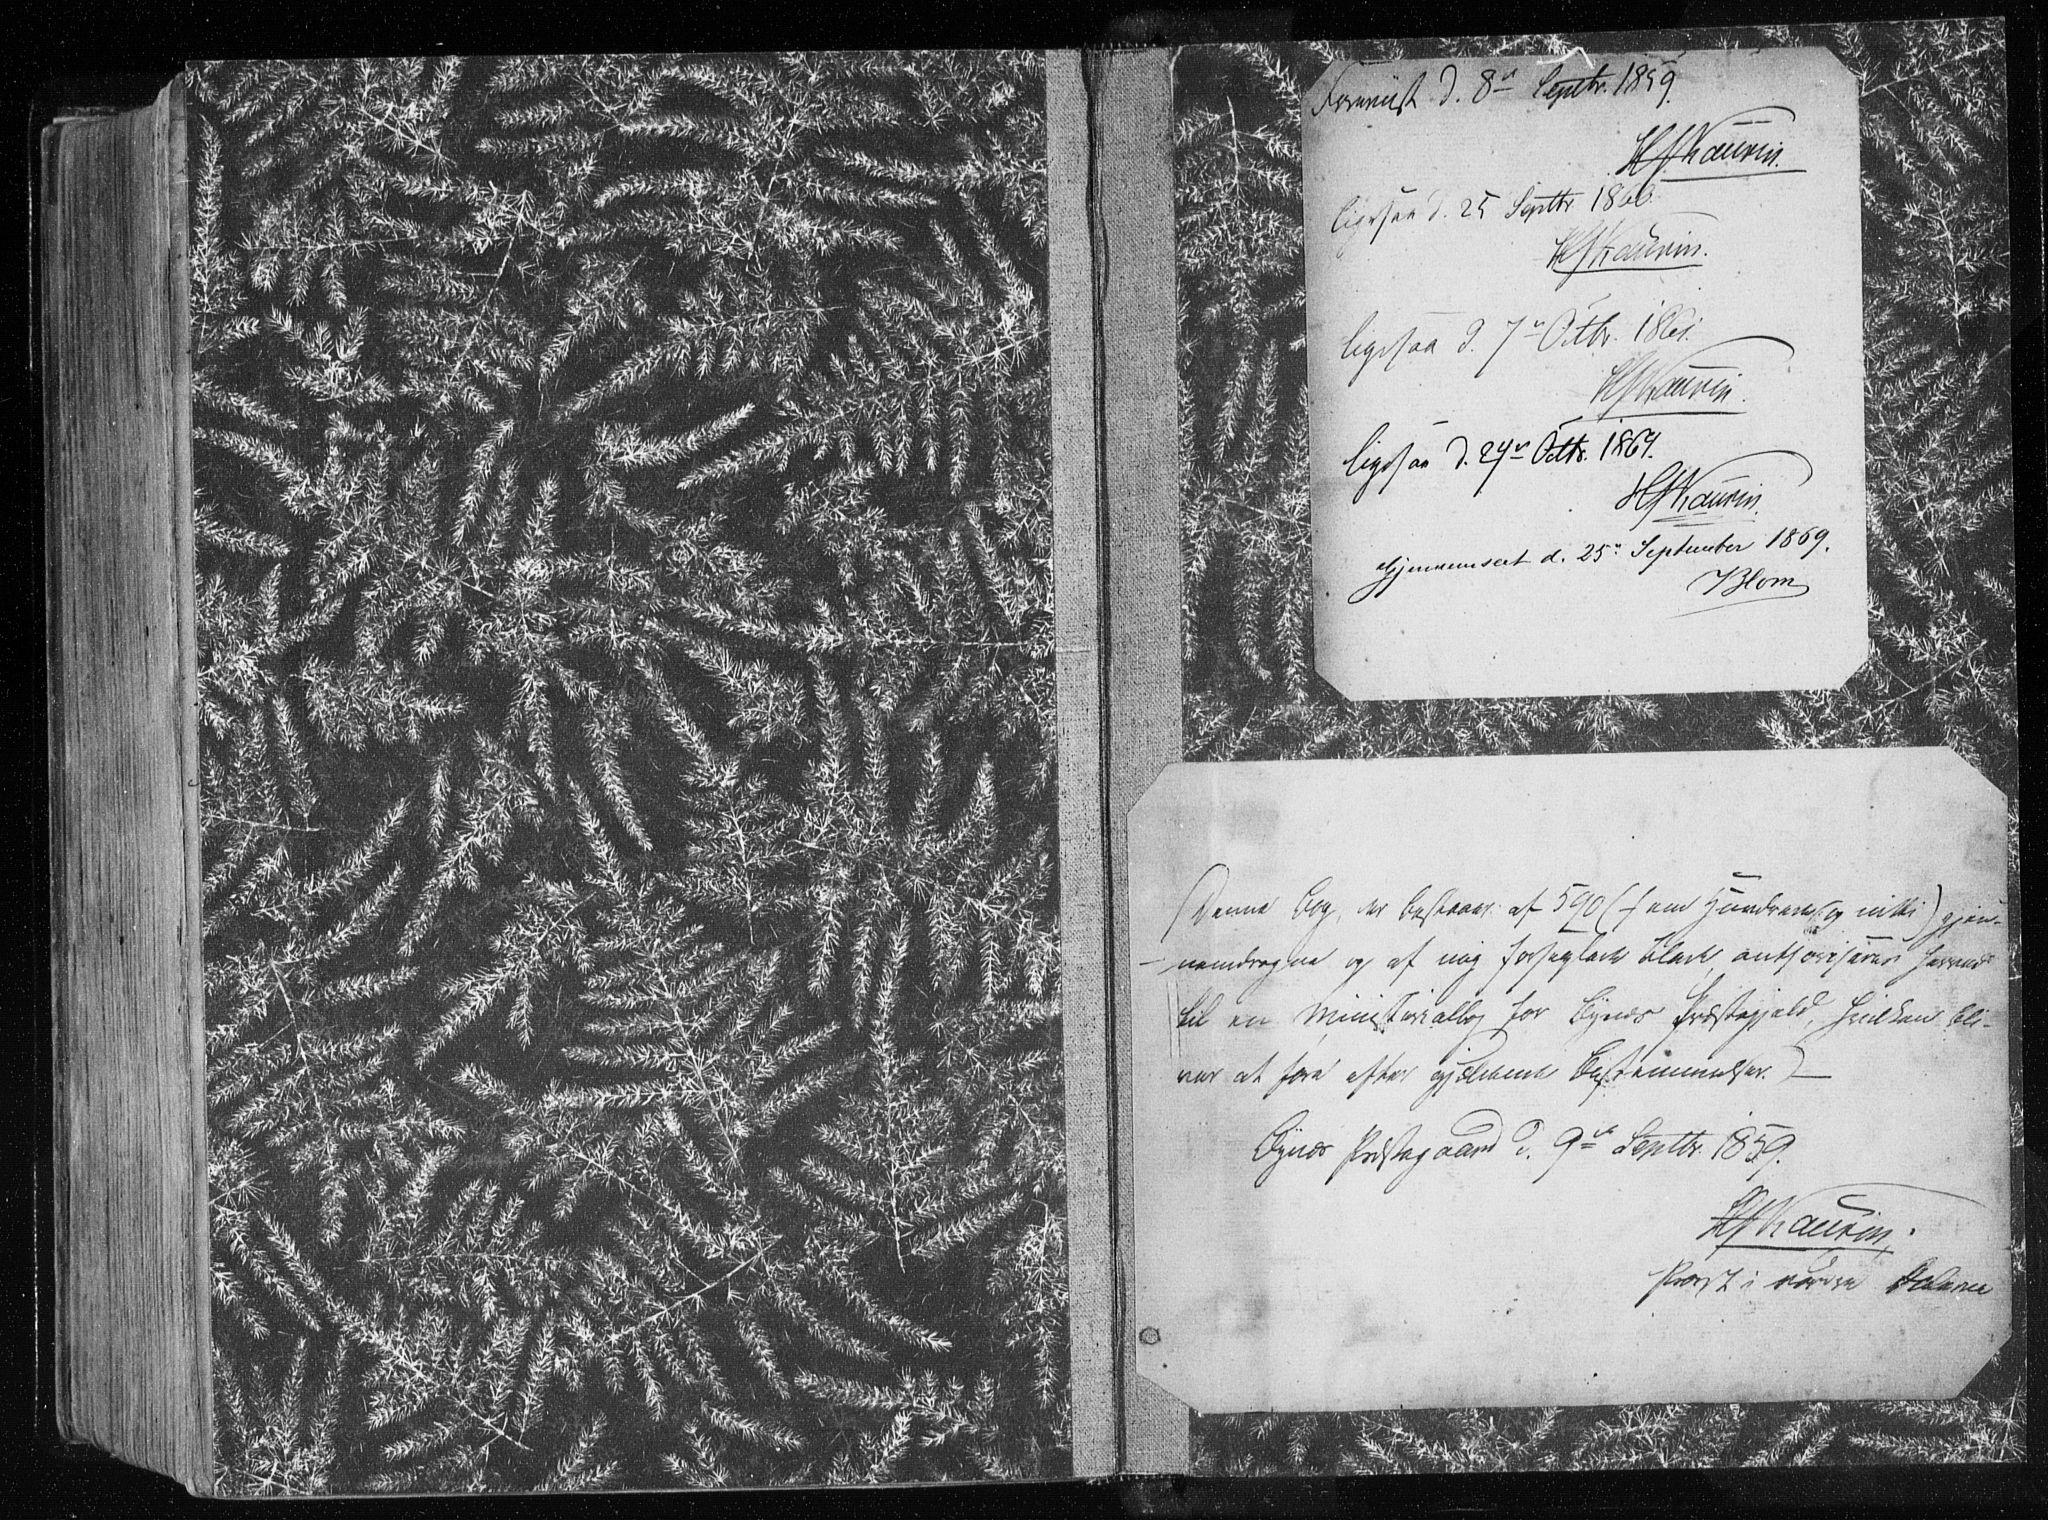 Foreviist d. 8de Septbr. 1859.
HJKaurin.
ligesaa d. 25 Septbr 1860.
HJKaurin.
ligesaa d. 7de Octbr. 1861.
HJKaurin.
ligesaa d. 24de Octbr. 1864.
HJKaurin.
Gjennemseet d. 25de September 1869.
Blom
(Denne Bog, der bestaaer af 590 (fem Hundrede og nitti) gjen-
nemdragne og af mig forseglede Blade, authoriseres herved
til en Ministerialbog for Bynes Præstegjeld, hvilken bli-
ver at føre efter gjeldende Bestemmelser.)
Bynes Præstegaard d. 9de Septbr. 1859.
HJKaurin.
Provst i nordre Dalerne